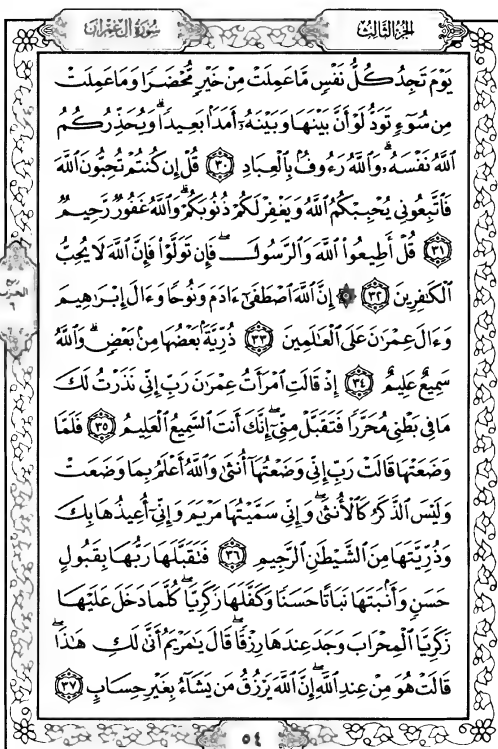 سُورَةُ آلِ عِمْرَانَ الجُزْءُ الثَّالِثُ
يَوْمَ تَجِدُ كُلُّ نَفْسٍ مَّا عَمِلَتْ مِنْ خَيْرٍ مُّحْضَرًا وَمَا عَمِلَتْ
مِن سُوٓءٍ تَوَدُّ لَوْ أَنَّ بَيْنَهَا وَبَيْنَهُۥٓ أَمَدَۢا بَعِيدًا ۗ وَيُحَذِّرُكُمُ
ٱللَّهُ نَفْسَهُۥ ۗ وَٱللَّهُ رَءُوفُۢ بِٱلْعِبَادِ ٣٠ قُلْ إِن كُنتُمْ تُحِبُّونَ ٱللَّهَ
فَٱتَّبِعُونِى يُحْبِبْكُمُ ٱللَّهُ وَيَغْفِرْ لَكُمْ ذُنُوبَكُمْ ۗ وَٱللَّهُ غَفُورٌ رَّحِيمٌ
٣١ قُلْ أَطِيعُوا۟ ٱللَّهَ وَٱلرَّسُولَ ۖ فَإِن تَوَلَّوْا۟ فَإِنَّ ٱللَّهَ لَا يُحِبُّ
ٱلْكَٰفِرِينَ ٣٢ إِنَّ ٱللَّهَ ٱصْطَفَىٰٓ ءَادَمَ وَنُوحًا وَءَالَ إِبْرَٰهِيمَ
وَءَالَ عِمْرَٰنَ عَلَى ٱلْعَٰلَمِينَ ٣٣ ذُرِّيَّةَۢ بَعْضُهَا مِنۢ بَعْضٍ ۗ وَٱللَّهُ
سَمِيعٌ عَلِيمٌ ٣٤ إِذْ قَالَتِ ٱمْرَأَتُ عِمْرَٰنَ رَبِّ إِنِّى نَذَرْتُ لَكَ
مَا فِى بَطْنِى مُحَرَّرًا فَتَقَبَّلْ مِنِّىٓ ۖ إِنَّكَ أَنتَ ٱلسَّمِيعُ ٱلْعَلِيمُ ٣٥ فَلَمَّا
وَضَعَتْهَا قَالَتْ رَبِّ إِنِّى وَضَعْتُهَآ أُنثَىٰ وَٱللَّهُ أَعْلَمُ بِمَا وَضَعَتْ
وَلَيْسَ ٱلذَّكَرُ كَٱلْأُنثَىٰ ۖ وَإِنِّى سَمَّيْتُهَا مَرْيَمَ وَإِنِّىٓ أُعِيذُهَا بِكَ
وَذُرِّيَّتَهَا مِنَ ٱلشَّيْطَٰنِ ٱلرَّجِيمِ ٣٦ فَتَقَبَّلَهَا رَبُّهَا بِقَبُولٍ
حَسَنٍ وَأَنۢبَتَهَا نَبَاتًا حَسَنًا وَكَفَّلَهَا زَكَرِيَّا ۖ كُلَّمَا دَخَلَ عَلَيْهَا
زَكَرِيَّا ٱلْمِحْرَابَ وَجَدَ عِندَهَا رِزْقًا ۖ قَالَ يَٰمَرْيَمُ أَنَّىٰ لَكِ هَٰذَا ۖ
قَالَتْ هُوَ مِنْ عِندِ ٱللَّهِ ۖ إِنَّ ٱللَّهَ يَرْزُقُ مَن يَشَآءُ بِغَيْرِ حِسَابٍ ٣٧
٥٤